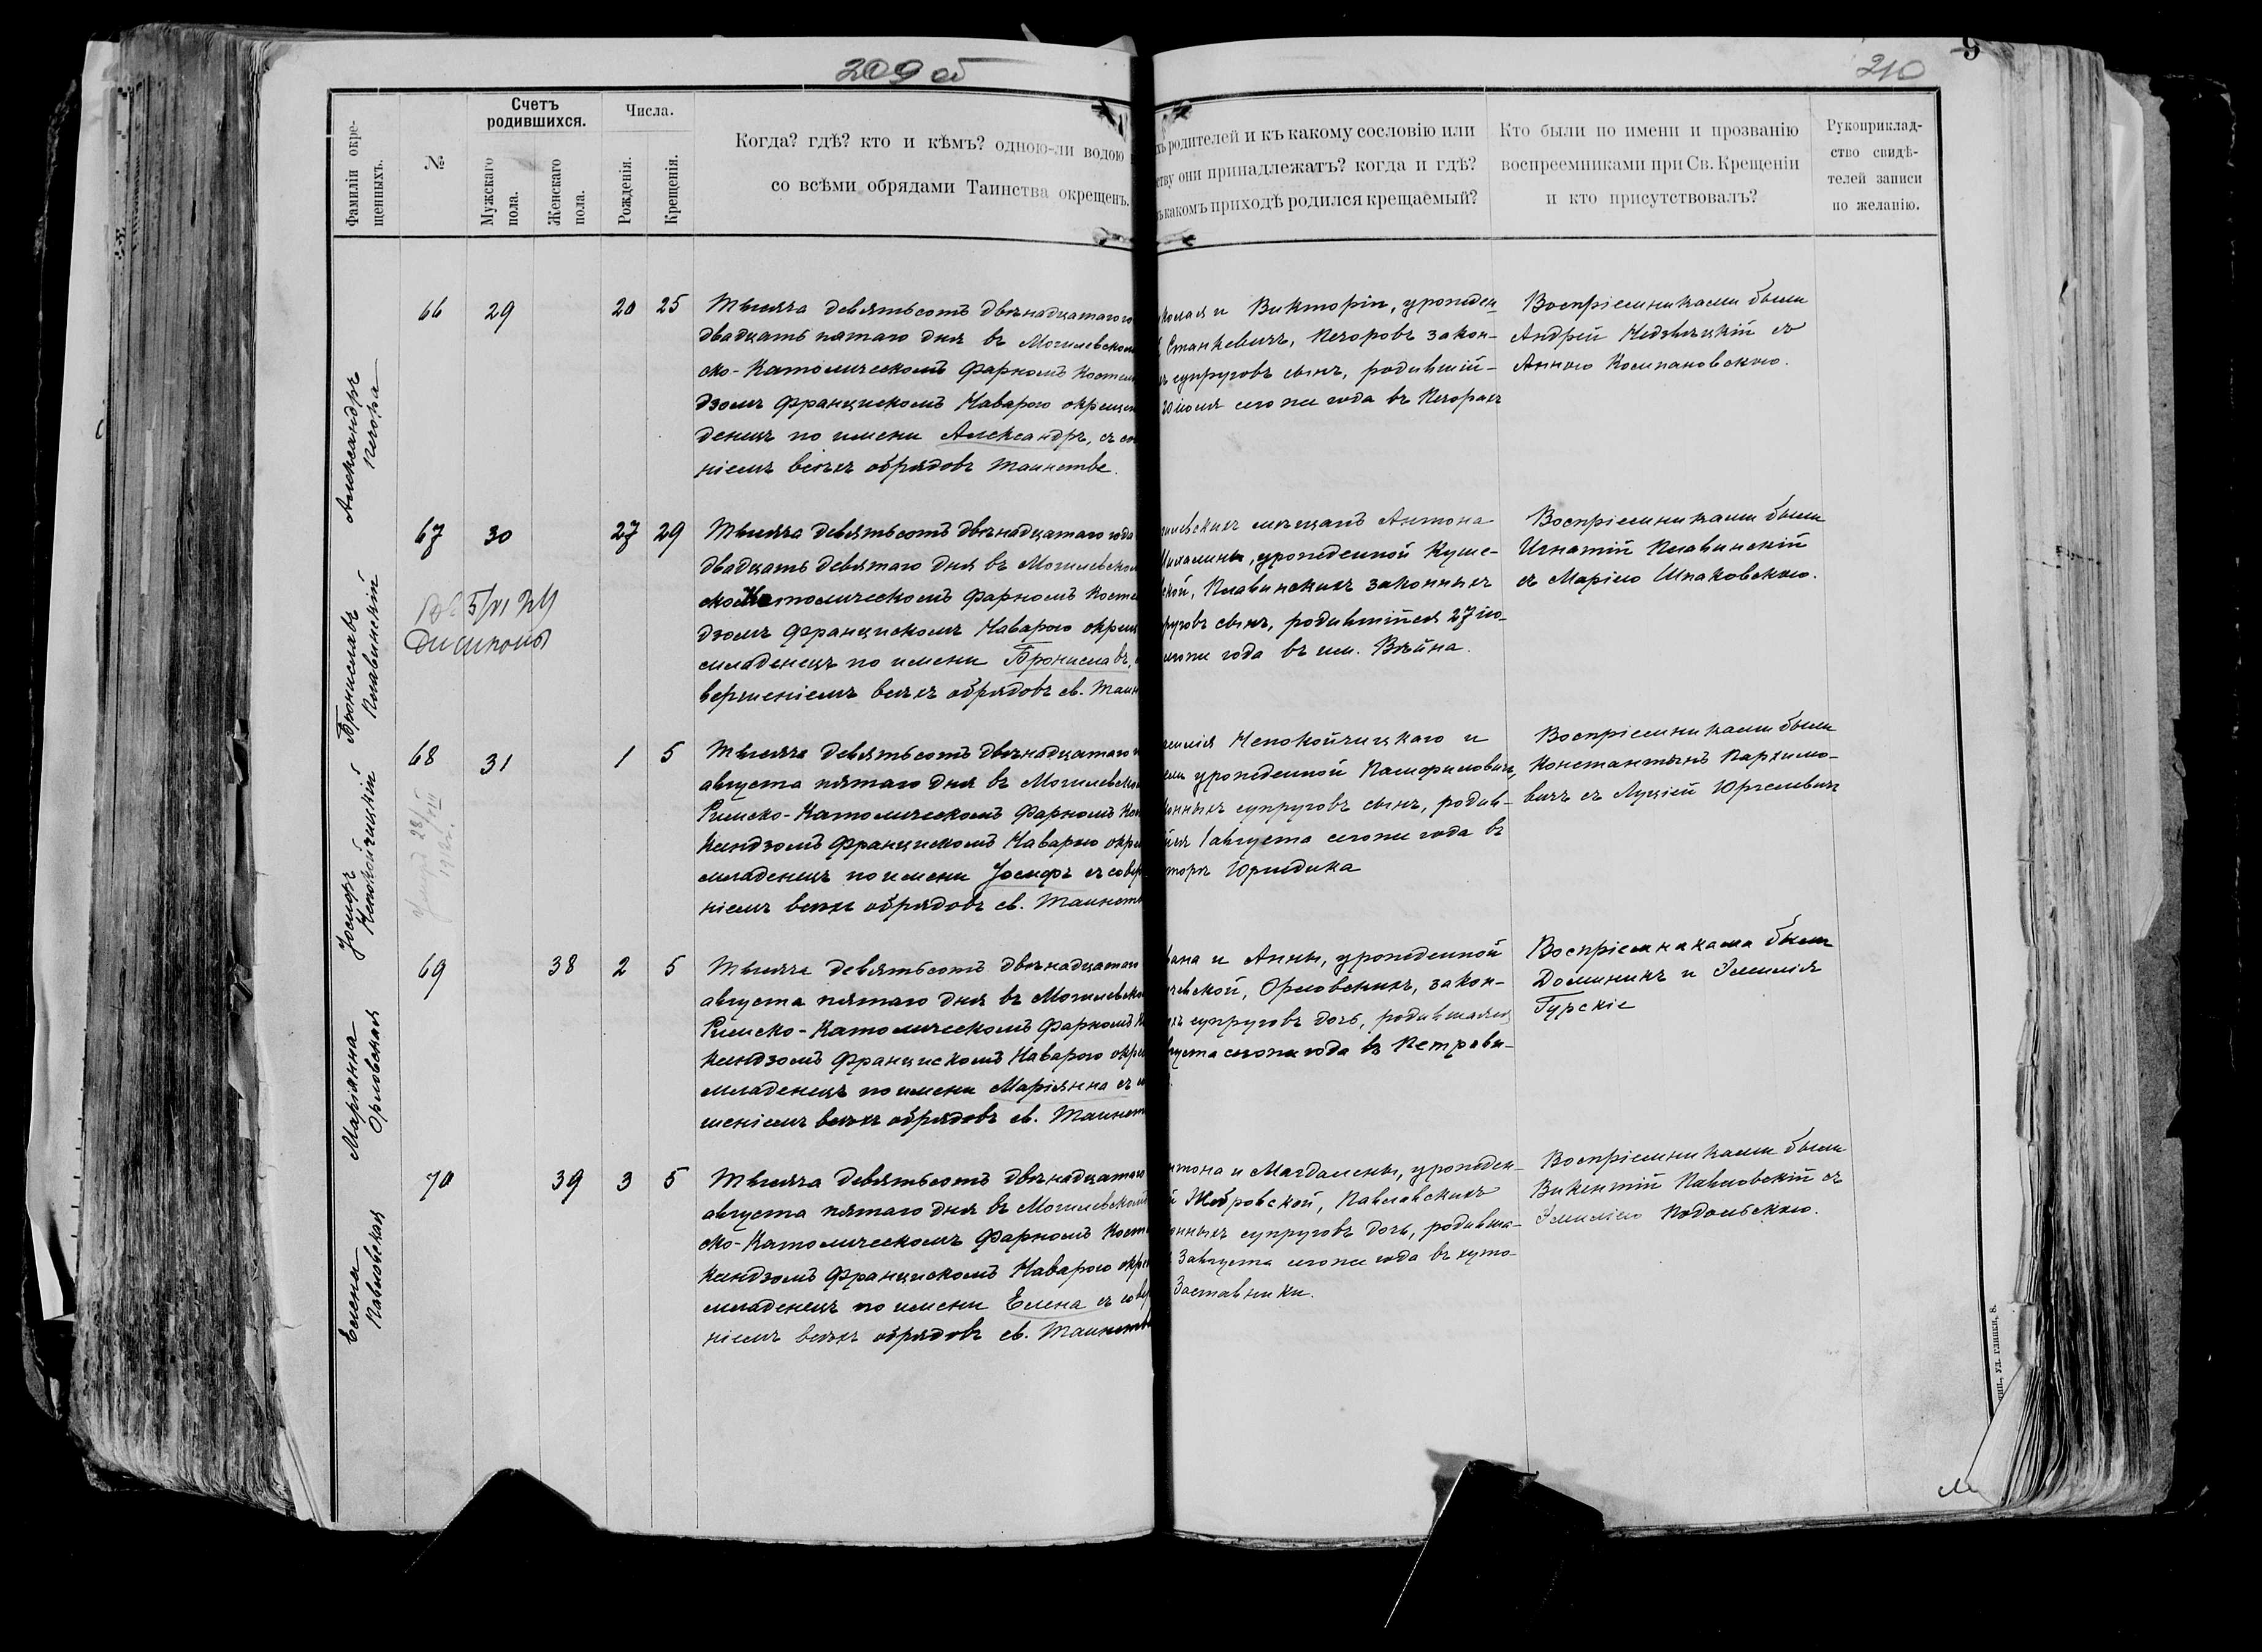 209 об
210
9
Фамиліи окре-
щенныхъ.
№
Счетъ
родившихся.
Мужскаго
пола.
Женскаго
пола.
Числа.
Рожденія.
Крещенія.
Когда? гдѣ? кто и кѣмъ? одною-ли водою
со всѣми обрядами Таинства окрещенъ.
родителей и къ какому сословію или
они принадлежатъ? когда и гдѣ?
какомъ приходѣ родился крещаемый?
Кто были по имени и прозванію
воспреемниками при Св. Крещеніи
и кто присутствовалъ?
Рукоприклад-
ство свидѣ-
телей записи
по желанію.
Александръ
Печора
66 29 20 25
Тысяча девятьсотъ двѣнадцатаго
двадцать пятаго дня въ Могилевском
ско-Католическомъ Фарномъ Костел
дзомъ Францискомъ Наварою окрещен
денецъ по имени Александръ, съ со
ніемъ всѣхъ обрядовъ таинства.
колая и Викторіи, урожден-
Станкевичъ, Печоровъ закон-
супруговъ сынъ, родившій-
20 іюля сего же года въ Печорах
Воспріемниками были
Андрей Недзвѣцкій съ
Анною Колпаковскою.
Брониславъ
Плавинскій
67 30 27 29
5/VI
Дипломъ
Тысяча девятьсотъ двѣнадцатаго года
двадцать девятаго дня въ Могилевском
ско-Католическомъ Фарномъ Косте
дзомъ Францискомъ Наварою окрещ
младенецъ по имени Брониславъ,
вершеніемъ всѣхъ обрядовъ св. Таин
гилевскихъ мѣщанъ Антона
Михалины, урожденной Куше-
ской, Плавинскихъ законныхъ
руговъ сынъ, родившійся 27 ію-
сего же года въ им. Вѣйна.
Воспріемниками были
Игнатій Плавинскій
съ Маріею Шпаковскою.
Іосифъ
Непокойчицкій
68 31 1 5
28/VIII
Тысяча девятьсотъ двѣнадцатаго
августа пятаго дня въ Могилевском
Римско-Католическомъ Фарномъ Кос
Ксендзомъ Францискомъ Наварою окре
младенецъ по имени Іосифъ съ совер
ніемъ всѣхъ обрядовъ св. Таинств
Непокойчицкаго и
урожденной Памфиловичъ,
конныхъ супруговъ сынъ, родив-
1 августа сего же года въ
торѣ Юридика
Воспріемниками были
Константинъ Пархимо-
вичъ съ Луціей Юргелевичъ
Маріянна
Орловская
69 38 2 5
Тысяча девятьсотъ двѣнадцатаго
августа пятаго дня въ Могилевско
Римско-Католическомъ Фарномъ К
Ксендзомъ Францискомъ Наварою окре
младенецъ по имени Маріянна съ со
шеніемъ всѣхъ обрядовъ св. Таинст
вана и Анны, урожденной
чевской, Орловскихъ, закон-
хъ супруговъ дочь, родившаяся
густа сего же года въ Петрови-
Воспріемниками были
Доминикъ и Эмилія
Гурскіе
Елена
Павловская
70 39 3 5
Тысяча девятьсотъ двѣнадцатаго
августа пятаго дня въ Могилевскомъ
ско-Католическомъ Фарномъ Кост
Ксендзомъ Францискомъ Наварою окре
младенецъ по имени Елена съ совер
ніемъ всѣхъ обрядовъ св. Таинства
нтона и Магдалены, урожден-
й Жебровской, Павловскихъ
онныхъ супруговъ дочь, родивша-
3 августа сего же года въ хуто-
Заставники.
Воспріемниками были
Викентій Павловскій съ
Эмиліею Подольскою.
ул. глинки, 8.